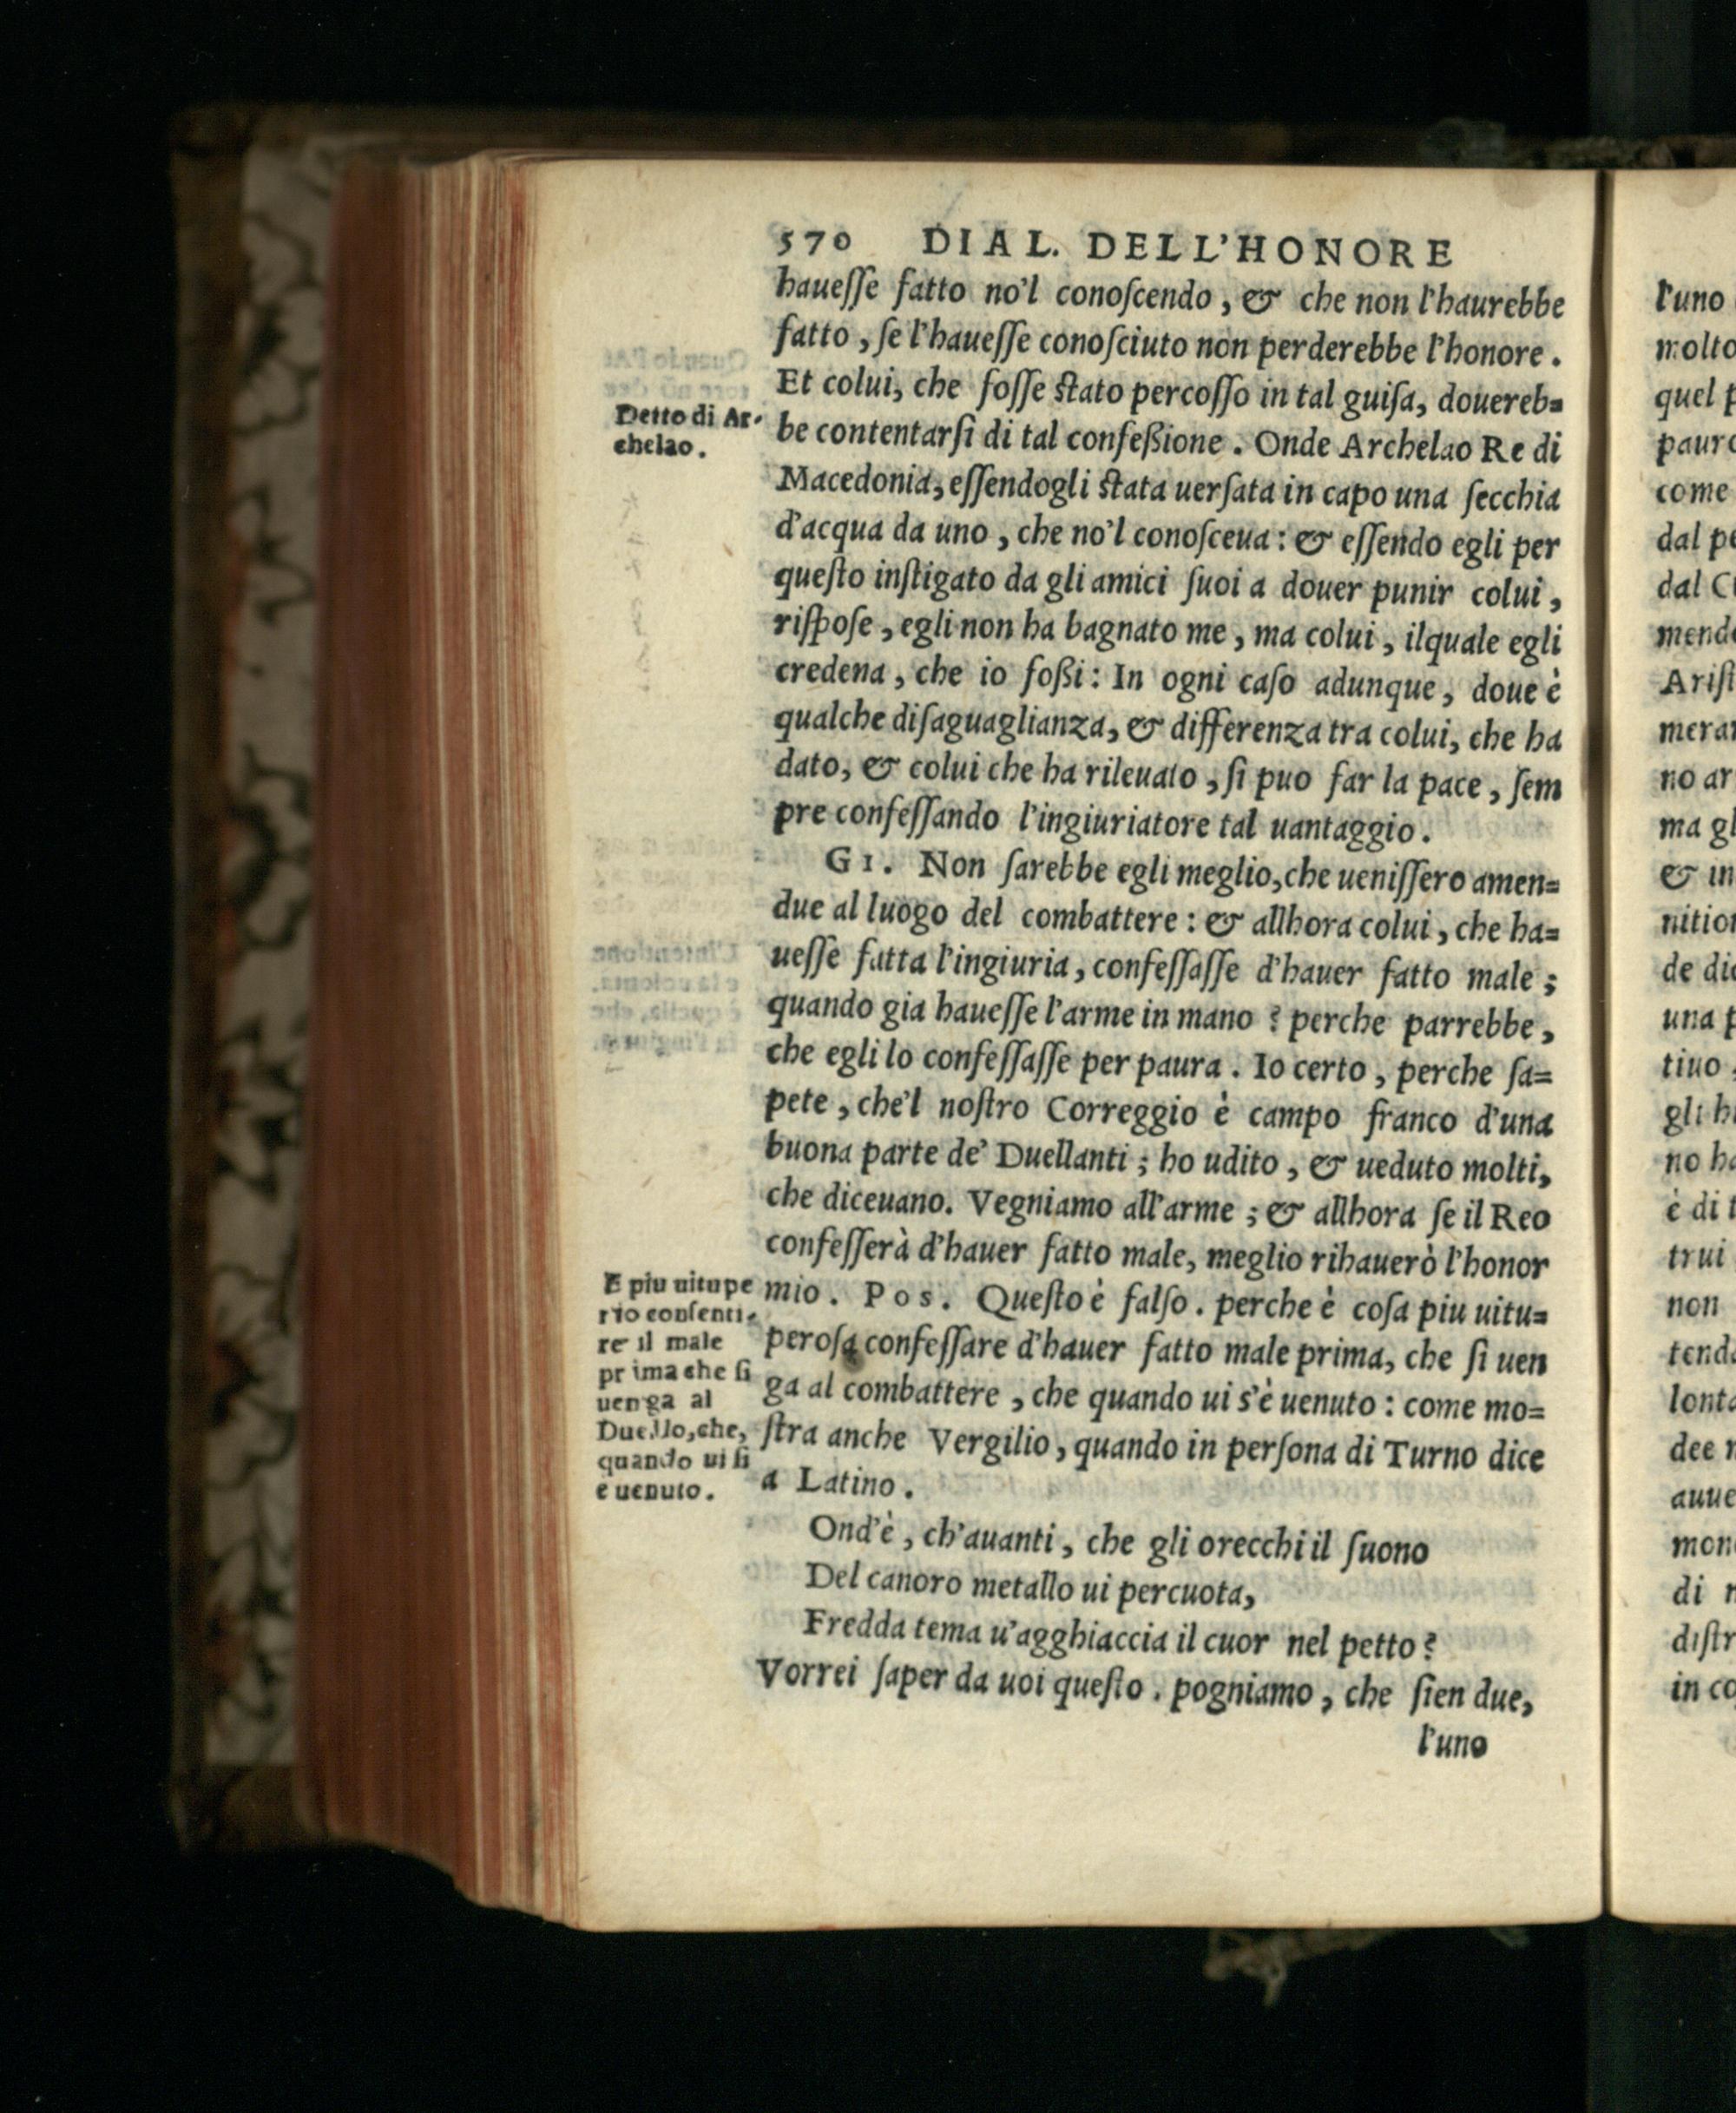 570 DIAL. DELL'HONORE
hauesse fatto no'l conoscendo, & che non l'haurebbe
fatto, se l'hauesse conosciuto non perderebbe l'honore.
Et colui, che fosse stato percosso in tal guisa, douereb=
be contentarsi di tal confeßione. Onde Archelao Re di
Macedonia, essendogli stata uersata in capo una secchia
d'acqua da uno, che no'l conosceua: & essendo egli per
questo instigato da gli amici suoi a douer punir colui,
rispose, egli non ha bagnato me, ma colui, ilquale egli
credena, che io foßi: In ogni caso adunque, doue è
qualche disaguaglianza, & differenza tra colui, che ha
dato, & colui che ha rileuato, si puo far la pace, sem
pre confessando l'ingiuriatore tal uantaggio.
GI. Non sarebbe egli meglio, che uenissero amen=
due al luogo del combattere: & allhora colui, che ha=
uesse fatta l'ingiuria, confessasse d'hauer fatto male;
quando gia hauesse l'arme in mano? perche parrebbe,
che egli lo confessasse per paura. Io certo, perche sa=
pete, che'l nostro Correggio è campo franco d'una
buona parte de' Duellanti; ho udito, & ueduto molti,
che diceuano. Vegniamo all'arme; & allhora se il Reo
confesserà d'hauer fatto male, meglio rihauerò l'honor
mio. Pos. Questo è falso. perche è cosa piu uitu=
perosa confessare d'hauer fatto male prima, che si uen
ga al combattere, che quando ui s'è uenuto: come mo=
stra anche Vergilio, quando in persona di Turno dice
a Latino.
Ond'è, ch'auanti, che gli orecchi il suono
Del canoro metallo ui percuota,
Fredda tema u'agghiaccia il cuor nel petto?
Vorrei saper da uoi questo. pogniamo, che sien due,
l'uno
Detto di Ar-
chelao.
E piu uitupe
rio consenti-
re il male
prima che si
uenga al
Duello, che,
quando ui si
e uenuto.
l'uno
molto
quel
come
Arist
no ar
& in
una
tiuo
è di
trui
non
dee
di
in